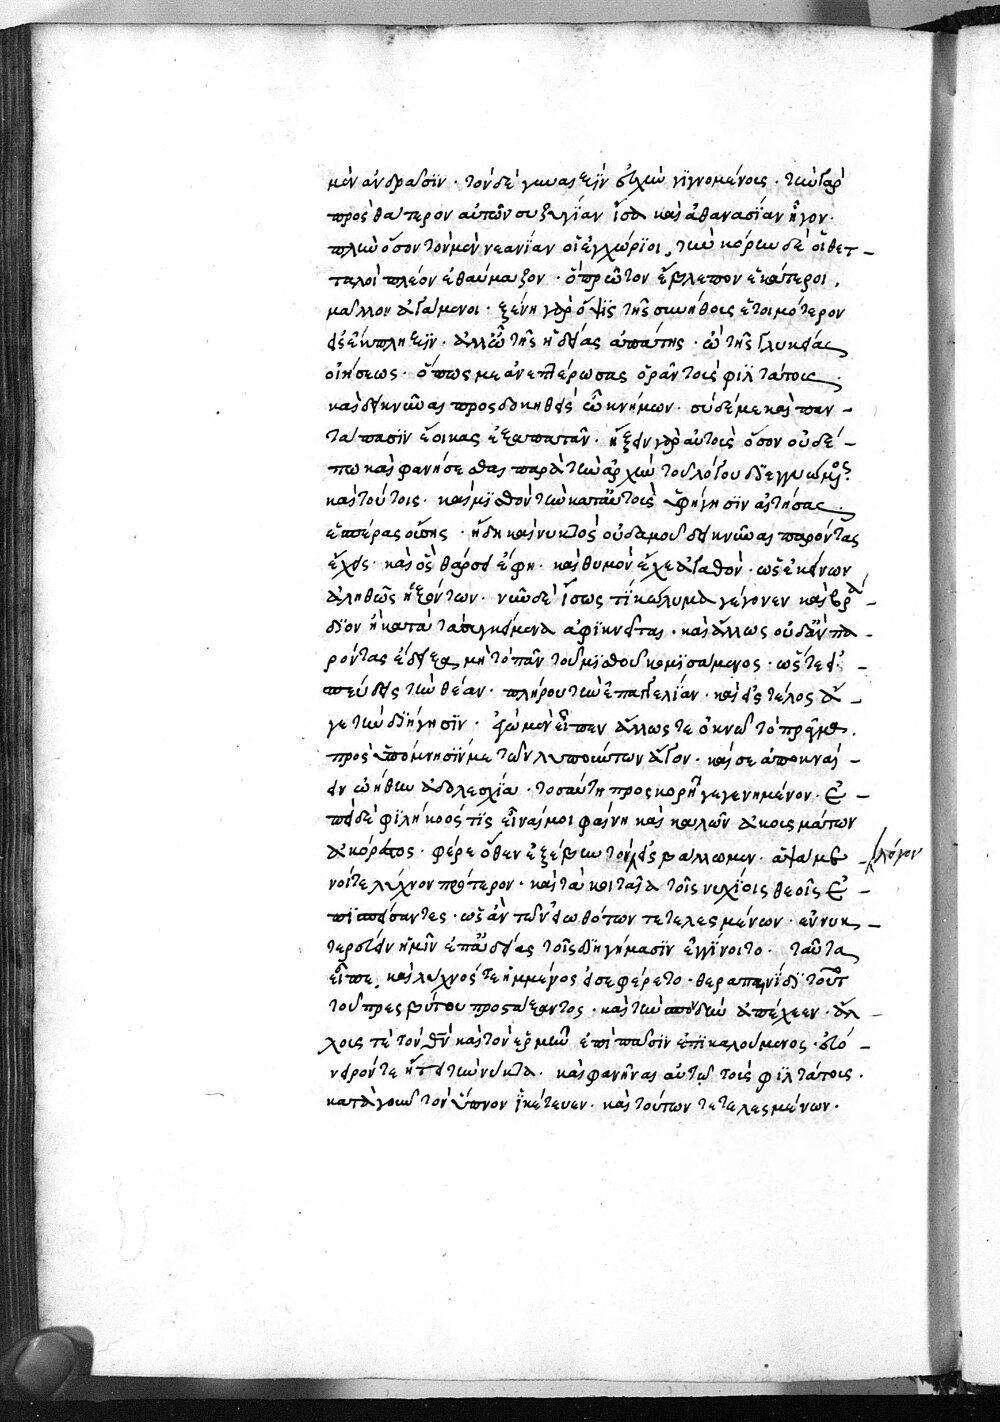 μὲν ἀνδράσϊν · τὸν δὲ γυναιξὶν εὐχὴν γϊγνομένοις · τὴν γὰρ
πρὸς θάτερον αὐτῶν συζυγϊαν ἴσα καὶ ἀθανασϊαν ἦγον ·
πλὴν ὅσον τὸν μὲν νεανϊαν οἱ ἐγχώρϊοι, τὴν κόρην δὲ οἱ θετ –
ταλοὶ πλέον ἐθαύμαζον · ὃ πρῶτον ἔβλεπον ἑκάτεροι,
μᾶλλον ἀγάμενοι · ξένη γὰρ ὄψις τῆς συνήθους ἑτοιμότερον
εἰς ἔκπληξϊν · ἀλλ' ὢ τῆς ἡδείας ἀπάτης · ὢ τῆς γλυκείας
οἰήσεως · ὅπως με ἀνεπτέρωσας ὁρᾶν τοὺς φιλτάτους
καὶ δεικνύναι προσδοκηθεὶς ὦ κνήμων · σὺ δέ με καὶ παν –
τάπασϊν ἔοικας ἐξαπατᾶν · ἥξειν γὰρ αὐτοὺς ὅσον οὐδέ –
πω καὶ φανήσεσθαι παρὰ τὴν ἀρχὴν τοῦ λόγου διεγγυώμενος
καὶ τούτοις · καὶ μισθὸν τὴν κατ' αὐτοὺς ἀφήγησϊν αἰτήσας
ἑσπέρας οὔσης · ἤδη καὶ νυκτὸς οὐδαμοῦ δεικνύναι παρόντας
ἔχεις · καὶ ὃς θάρσει ἔφη · καὶ θυμὸν ἔχε ἀγαθὸν · ὡς ἐκείνων
ἀληθῶς ἡξόντων · νῦν δὲ ἴσως τϊ κώλυμα γέγονεν καὶ βρά –
δϊον ἢ κατὰ τὰ συγκείμενα ἀφϊκνεῖται · καὶ ἄλλως οὐδ' ἂν πα –
ρόντας ἔδειξα μὴ τὸ πᾶν τοῦ μϊσθοῦ κομϊσάμενος · ὥστε εἰ –
σπεύδεις τὴν θέαν · πλήρου τὴν ἐπαγγελϊαν · καὶ εἰς τέλος ἄ –
γε τὴν δϊήγησϊν · ἐγὼ μὲν εἶπεν ἄλλως τε ὀκνῶ τὸ πρᾶγμα ·
πρὸς ὑπόμνησϊν με τῶν λυπούντων ἄγον · καὶ σε ἀποκναί –
ειν ᾠήθην ἀδολεσχϊα · τοσαύτῃ προσκορῆ γεγενημένον · ἐ –
πεὶ δὲ φϊλήκοός τϊς εἶναί μοι φαίνῃ καὶ καλῶν ἀκουσμάτων
ἀκόρατος · φέρε ὅθεν ἐξέβην τὸν εἰσβάλλωμεν · ἁψάμε – λόγον
νοί τε λύχνον πρότερον · καὶ τὰ κοιταῖα τοῖς νυχϊοις θεοῖς ἐ –
πϊσπείσαντες · ὡς ἂν τῶν εἰωθότων τετελεσμένων · ἐννυκ –
τερεύειν ἡμῖν ἐπ' ἀδείας τοῖς δϊηγήμασϊν ἐγγϊνοιτο · ταῦτα
εἶπε, καὶ λύχνός τε ἡμμένος εἰσεφέρετο · θεραπαινίδϊ τοῦτο
τοῦ πρεσβύτου προστάξαντος · καὶ τὴν σπονδὴν ἀπέχεεν · ἄλ –
λους τὲ τῶν θεῶν καὶ τὸν ἑρμῆν ἐπὶ πᾶσϊν ἐπϊκαλούμενος · εὐό –
νειρόν τε ᾔτει τὴν νύκτα · καὶ φανῆναι αὐτῷ τοὺς φϊλτάτους ·
κατὰ γοῦν τὸν ὕπνον ϊκέτευεν · καὶ τούτων τετελεσμένων ·